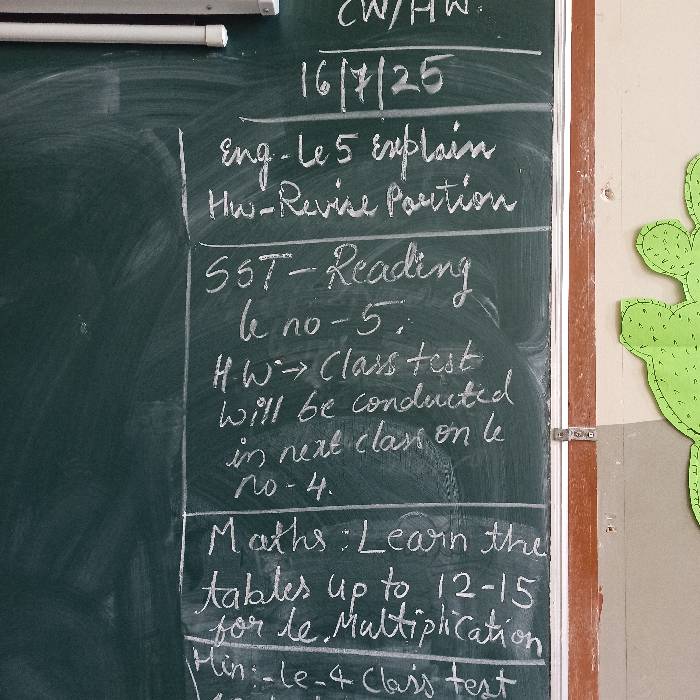 CW/HW.
16/7/25
Eng-Le 5 Explain
Hw-Revise Portion
SST - Reading
le no - 5.
H.W → Class test
will be conducted
in next class on le
no - 4.
Maths : Learn the
tables up to 12-15
for le. Multiplication
Hin:-Le-4 Class test